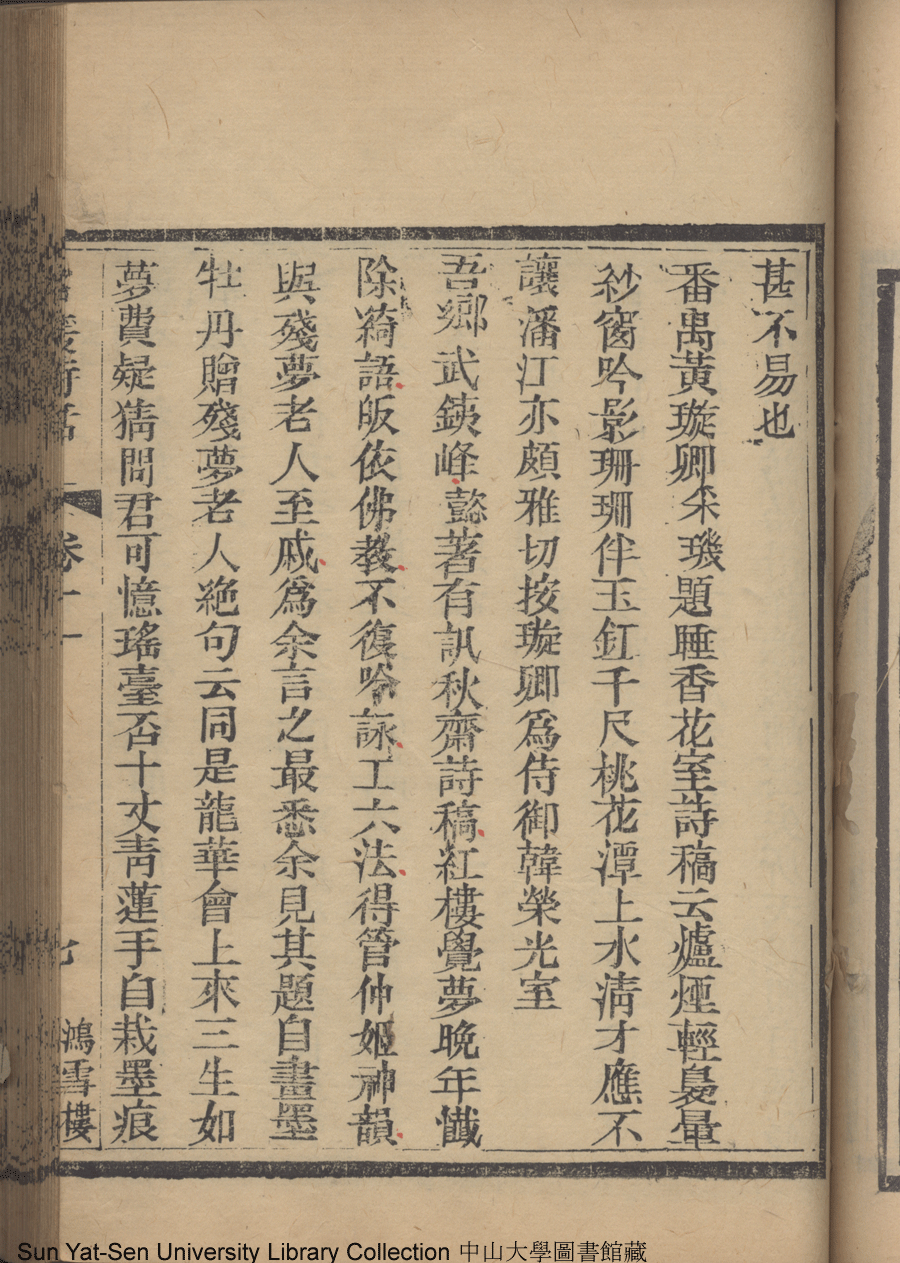 甚不易也
番禺黃璇卿采璣題睡香花室詩稿云爐煙輕裊暈
紗窗吟影珊珊伴玉釭千尺桃花潭上水清才應不
讓潘江亦頗雅切按璇卿爲侍御韓榮光室
吾鄉武銕峰懿著有訊秋齋詩稿紅樓覺夢晚年懺
除綺語皈依佛教不復吟詠工六法得管仲姬神韻
與殘夢老人至戚爲余言之最悉余見其題自畫墨
牡丹贈殘夢老人絶句云同是龍華會上來三生如
夢費疑猜問君可憶瑤臺否十丈靑蓮手自栽墨痕
詩話
卷十一
七
鴻雪樓
Sun Yat-Sen University Library Collection 中山大學圖書館藏